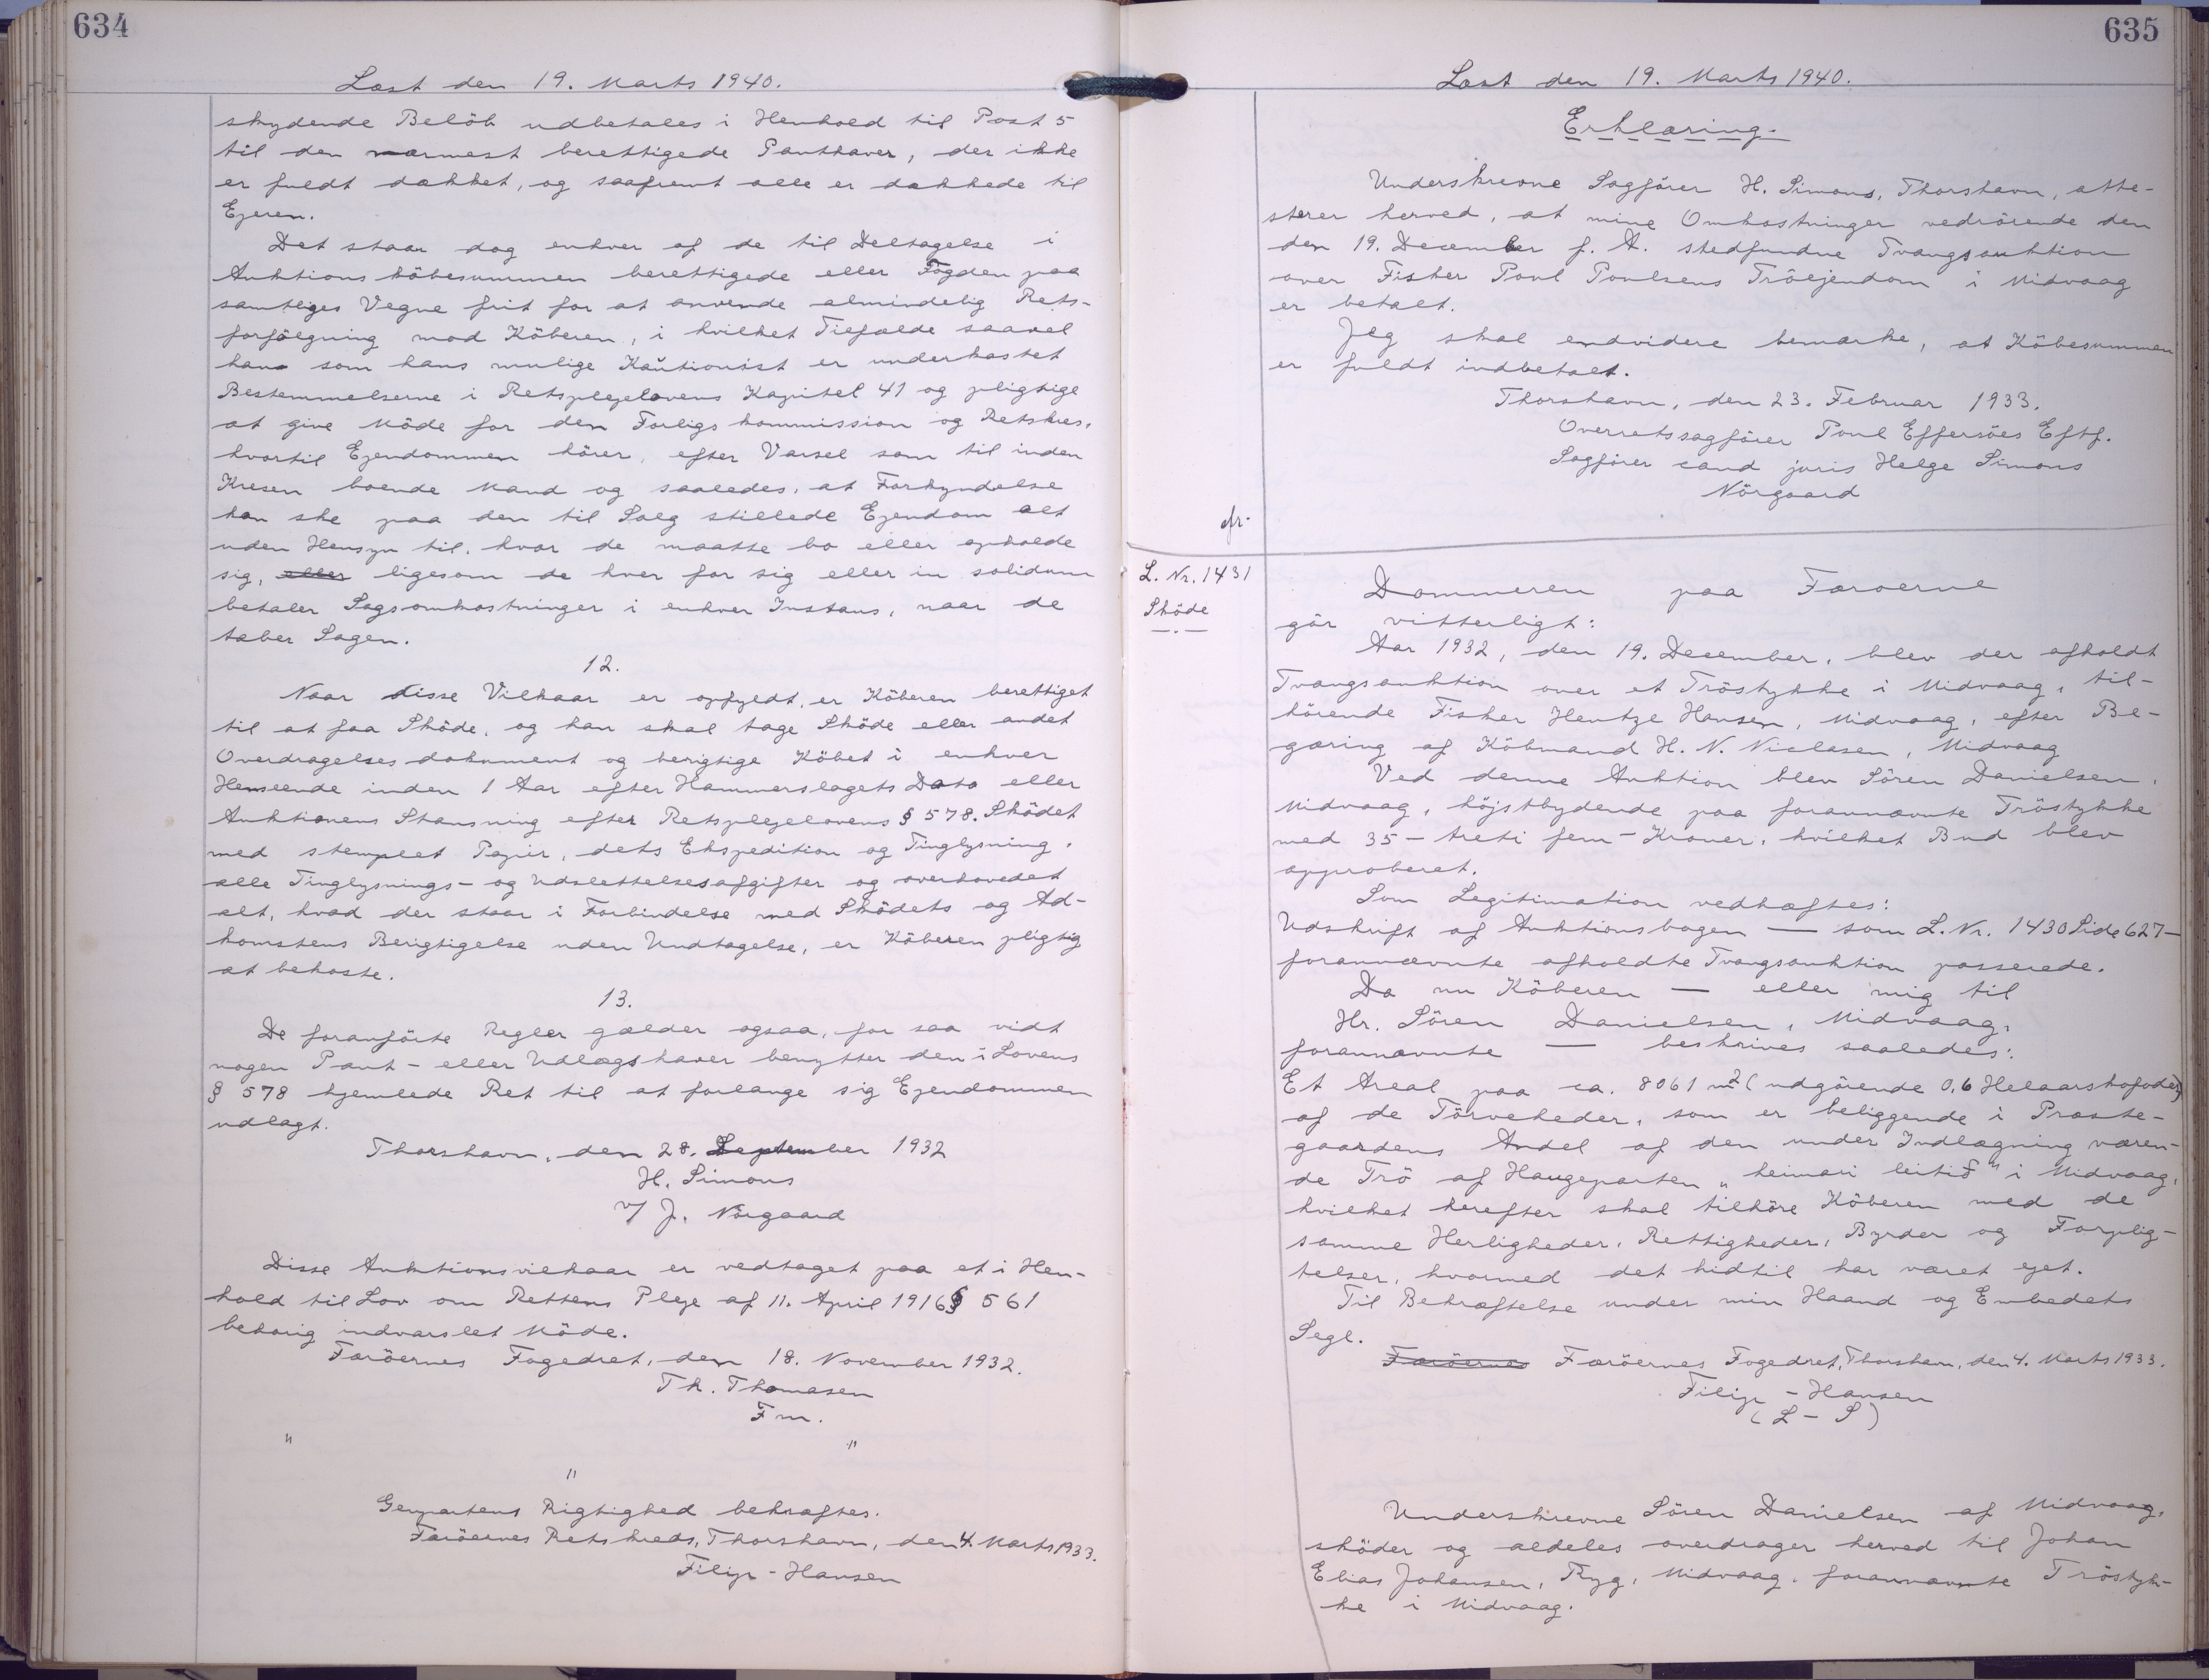 634
Læst den 19. Marts 1940.
skydende Belöb udbetales i Henhold til Post 5
til den nærmest berettigede Panthaver, der ikke
er fuldt dækket, og saafremt alle er dækkede til
Ejeren.
Det staar dog enhver af de til Deltagelse i
Auktionsköbesummen berettigede eller Fogden paa
samtliges Vegne frit for at anvende almindelig Rets-
forfölgning mod Köberen, i hvilket Tilfælde saavel
han som hans mulige Kautionist er underkastet
Bestemmelserne i Retsplejelovens Kapitel 41 og pligtige
at give Möde for den Forligskommission og Retskres,
hvortil Ejendommen hörer, efter Varsel som til inden
Kresen boende Mand og saaledes, at Forkyndelse
kan ske paa den til Salg stillede Ejendom alt
uden Hensyn til, hvor de maatte bo eller opholde
sig, eller ligesom de hver for sig eller in solidum
betaler Sagsomkostninger i enhver Instans, naar de
taber Sagen.
12.
Naar disse Vilkaar er opfyldt, er Köberen berettiget
til at faa Sköde, og han skal tage Sköde eller andet
Overdragelsesdokument og berigtige Köbet i enhver
Henseende inden 1 Aar efter Hammerslagets Dato eller
Auktionens Standsning efter Retsplejelovens § 578. Sködet
med stemplet Papir, dets Ekspedition og Tinglysning,
alle Tinglysnings- og Udslettelsesafgifter og overhovedet
alt, hvad der staar i Forbindelse med Sködets og Ad-
komstens Berigtigelse uden Undtagelse, er Köberen pligtig
at bekoste.
13.
De foranförte Regler gælder ogsaa, for saa vidt
nogen Pant- eller Udlægshaver benytter den i Lovens
§ 578 hjemlede Ret til at forlange sig Ejendommen
udlagt.
Thorshavn, den 28. September 1932
H. Simons
v/ J. Nörgaard
Disse Auktionsvilkaar er vedtaget paa et i Hen-
hold til Lov om Rettens Pleje af 11. April 1916 § 561
behörig indvarslet Möde.
Færöernes Fogedret, den 18. November 1932.
Th. Thomasen
Fm.
" "
"
Genpartens Rigtighed bekræftes.
Færöernes Retskreds, Thorshavn, den 4. Marts 1933.
Filip-Hansen
635
Læst den 19. Marts 1940.
Erklæring.
Underskrevne Sagförer H. Simons, Thorshavn, atte-
sterer herved, at mine Omkostninger vedrörende den
den 19. December f. A. stedfundne Tvangsauktion
over Fisker Poul Poulsens Tröejendom i Midvaag
er betalt.
Jeg skal endvidere bemærke, at Köbesummen
er fuldt indbetalt.
Thorshavn, den 23. Februar 1933.
Overretssagförer Poul Effersöes Eftf.
Sagförer cand juris Helge Simons
Nörgaard
L. Nr. 1431
Sköde
Dommeren paa Færoerne
gör vitterligt:
Aar 1932, den 19. December, blev der afholdt
Tvangsauktion over et Tröstykke i Midvaag, til-
hörende Fisker Hentze Hansen, Midvaag, efter Be-
gæring af Köbmand H. N. Niclasen, Midvaag
Ved denne Auktion blev Sören Danielsen,
Midvaag, höjstbydende paa forannævnte Tröstykke
med 35 - treti fem - Kroner, hvilket Bud blev
approberet.
Som Legitimation vedhæftes:
Udskrift af Auktionsbogen — som L. Nr. 1430 Side 627 —
forannævnte afholdte Tvangsauktion passerede.
Da nu Köberen — eller mig til
Hr. Sören Danielsen, Midvaag,
forannævnte — beskrives saaledes:
Et Areal paa ca. 8061 m² (udgörende 0,6 Helaarskofoder)
af de Törveheder, som er beliggende i Præste-
gaardens Andel af den under Indlægning væren-
de Trö af Haugeparten „heimari leitið" i Midvaag,
hvilket herefter skal tilhöre Köberen med de
samme Herligheder, Rettigheder, Byrder og Forplig-
telser, hvormed det hidtil har været ejet.
Til Bekræftelse under min Haand og Embedets
Segl.
Færöernes Færöernes Fogedret, Thorshavn, den 4. Marts 1933.
Filip - Hansen
(L - S)
Underskrevne Sören Danielsen af Midvaag,
sköder og aldeles overdrager herved til Johan
Elias Johansen, Ryg, Midvaag, forannævnte Tröstyk-
ke i Midvaag.